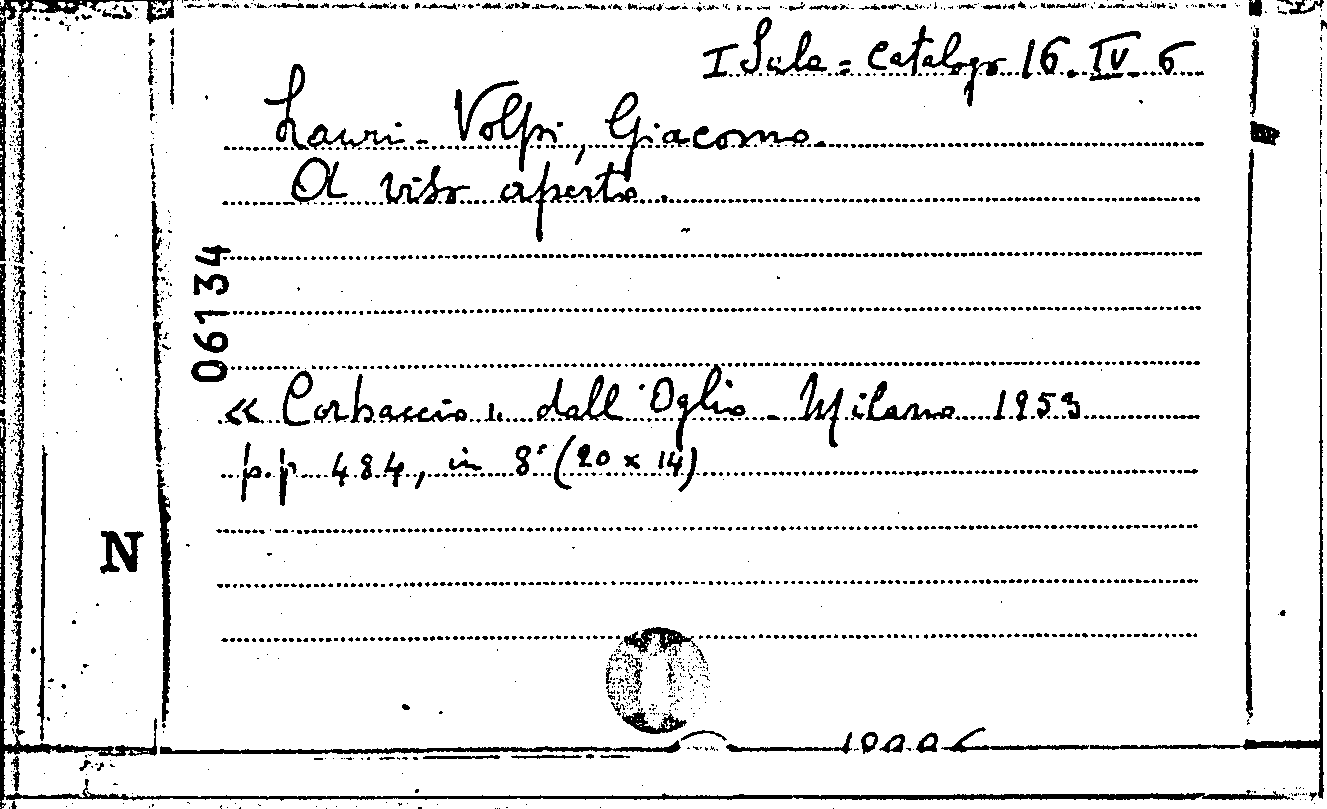 I Sala = Catalogo 16. IV. 6
Lauri-Volpi, Giacomo.
A viso aperto.
06134
« Corbaccio ». dall'Oglio - Milano 1953
p.p. 484, in 8° (20 x 14)
N